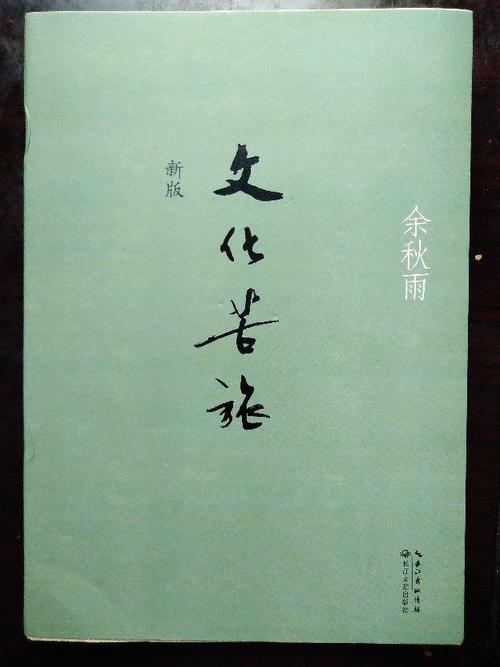 文化苦旅
新版
余秋雨
长江出版传媒
长江文艺出版社